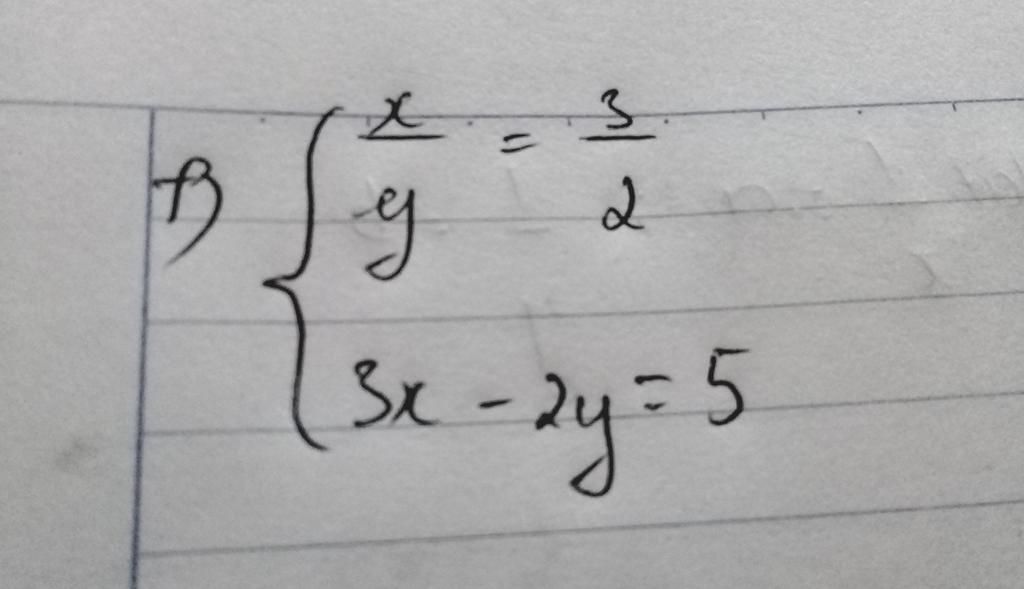 f) { x/y = 3/2
3x - 2y = 5